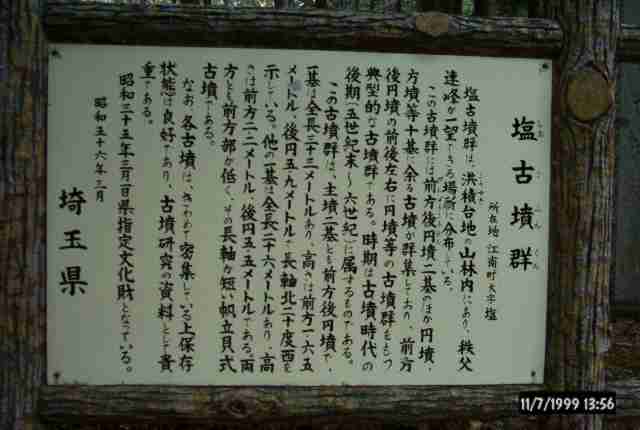 塩古墳群
しおこふんぐん
所在地 江南町大字塩
塩古墳群は、洪積台地の山林内にあり、秩父
連峰が一望できる場所に分布している。
この古墳群には前方後円墳二基のほか円墳、
方墳等十基に余る古墳が群集しており、前方
後円墳の前後左右に円墳等の古墳群をもつ
典型的な古墳群である。時期は古墳時代の
後期(五世紀末~六世紀)に属するものである。
この古墳群は、主墳二基とも前方後円墳で、
一基は全長三十三メートルあり、高さは前方一・六五
メートル、後円五・九メートルで長軸北二十度西を
示している。他の一基は全長二十六メートルあり、高
さは前方一・二メートル、後円五・五メートルである。両
方とも前方部が低く、その長軸が短い帆立貝式
古墳である。
なお、各古墳は、きわめて密集している上保存
状態は良好であり、古墳研究の資料として貴
重である。
昭和三十五年三月一日県指定文化財となっている。
昭和五十六年三月
埼玉県
11/7/1999 13:56